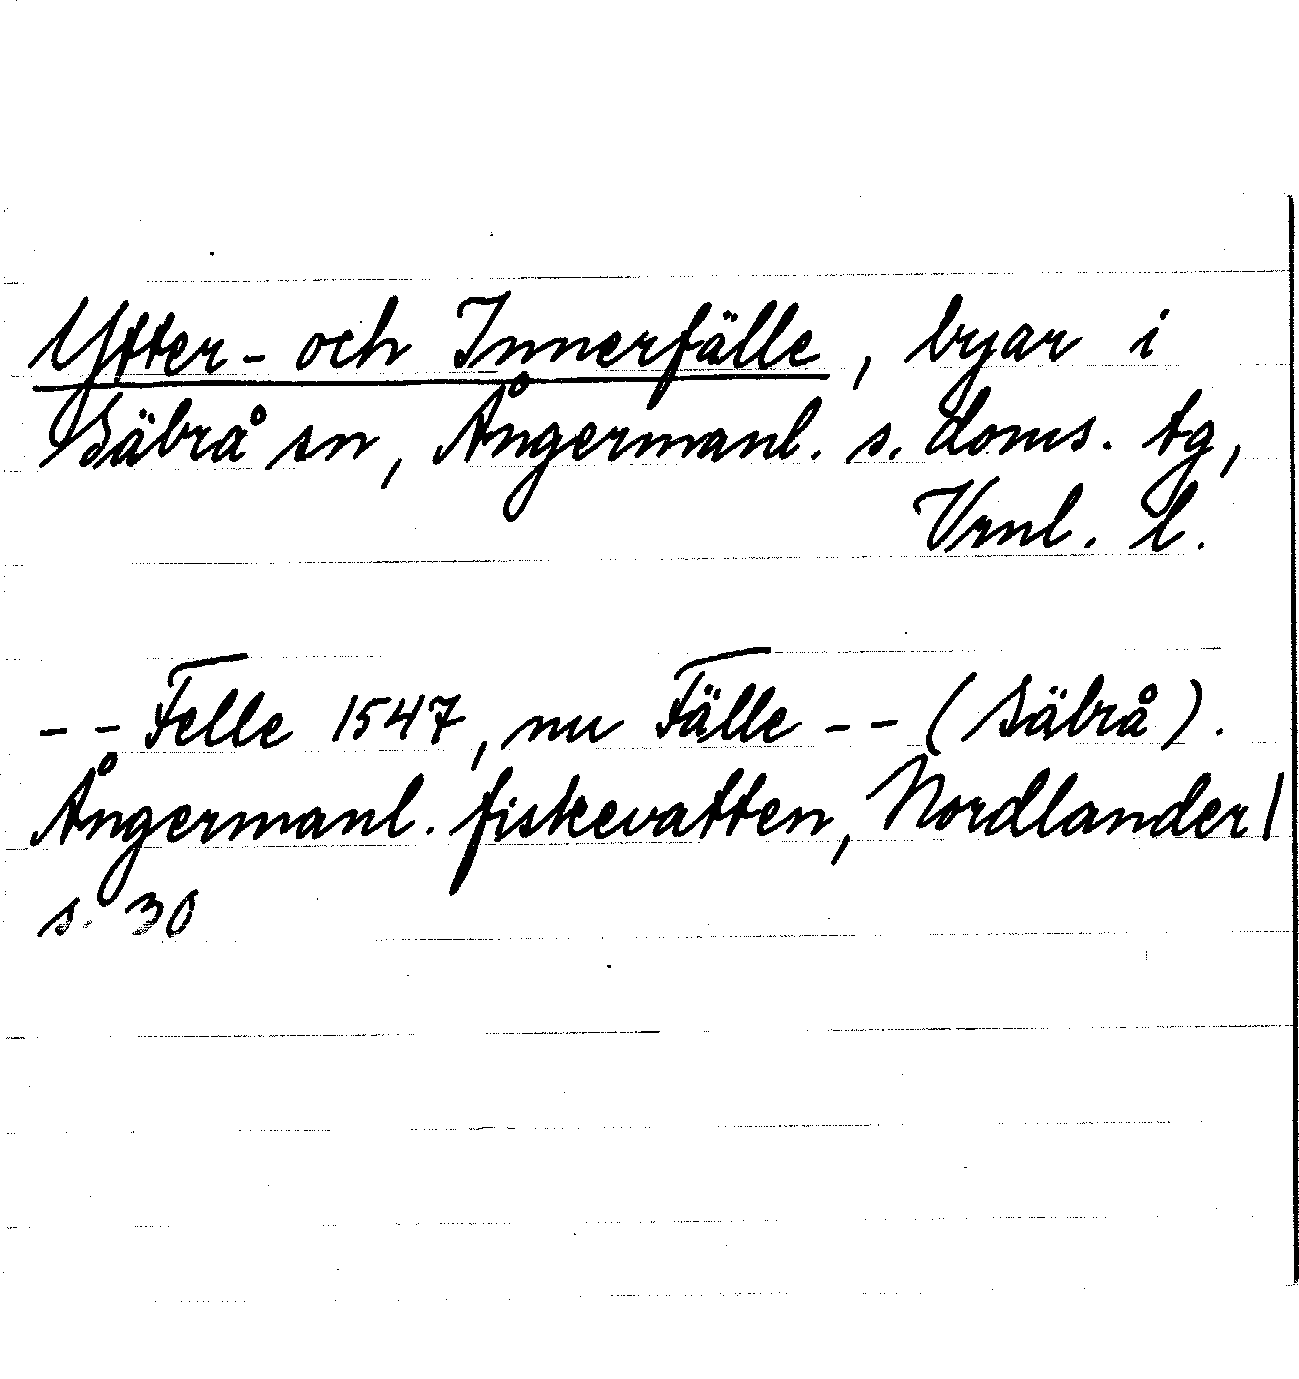 Ytter- och Innerfälle, byar i
Säbrå sn, Ångermanl. s. doms. tg,
Vrnl. l.
-- Felle 1547, nu Fälle -- (Säbrå).
Ångermanl. fiskevatten, Nordlander
s. 30